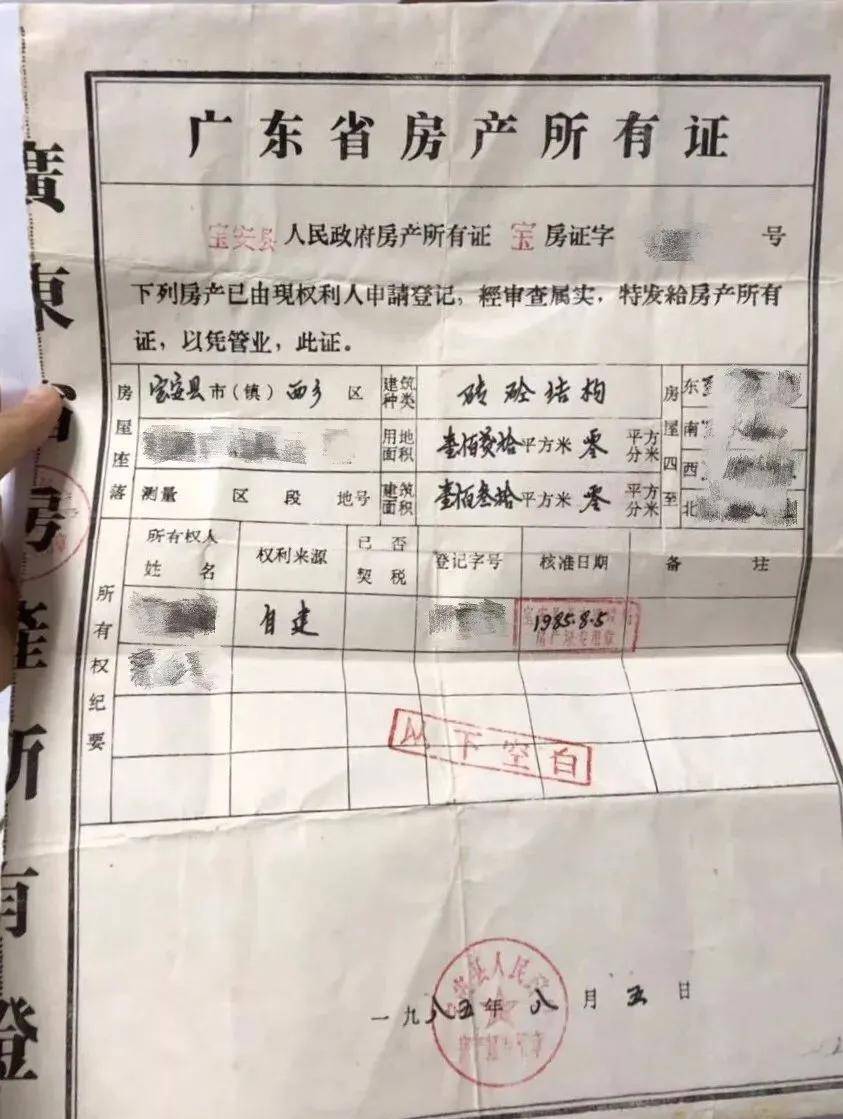 广东省房产所有证
宝安县人民政府房产所有证 宝 房证字 号
下列房产已由现权利人申請登记，經审查属实，特发給房产所有
证，以凭管业，此证。
房屋座落
宝安县市（镇）西乡区
测量 区 段 地号
建筑种类 砖砼结构
用地面积 壹佰贰拾平方米零平方分米
建筑面积 壹佰叁拾平方米零平方分米
房屋四至
东
南
西
北
所有权纪要
所有权人姓名 权利来源 已否契税 登记字号 核准日期 备注
自建 1985.8.5
以下空白
一九八五年八月五日
宝安县人民政
廣東省房產所有證